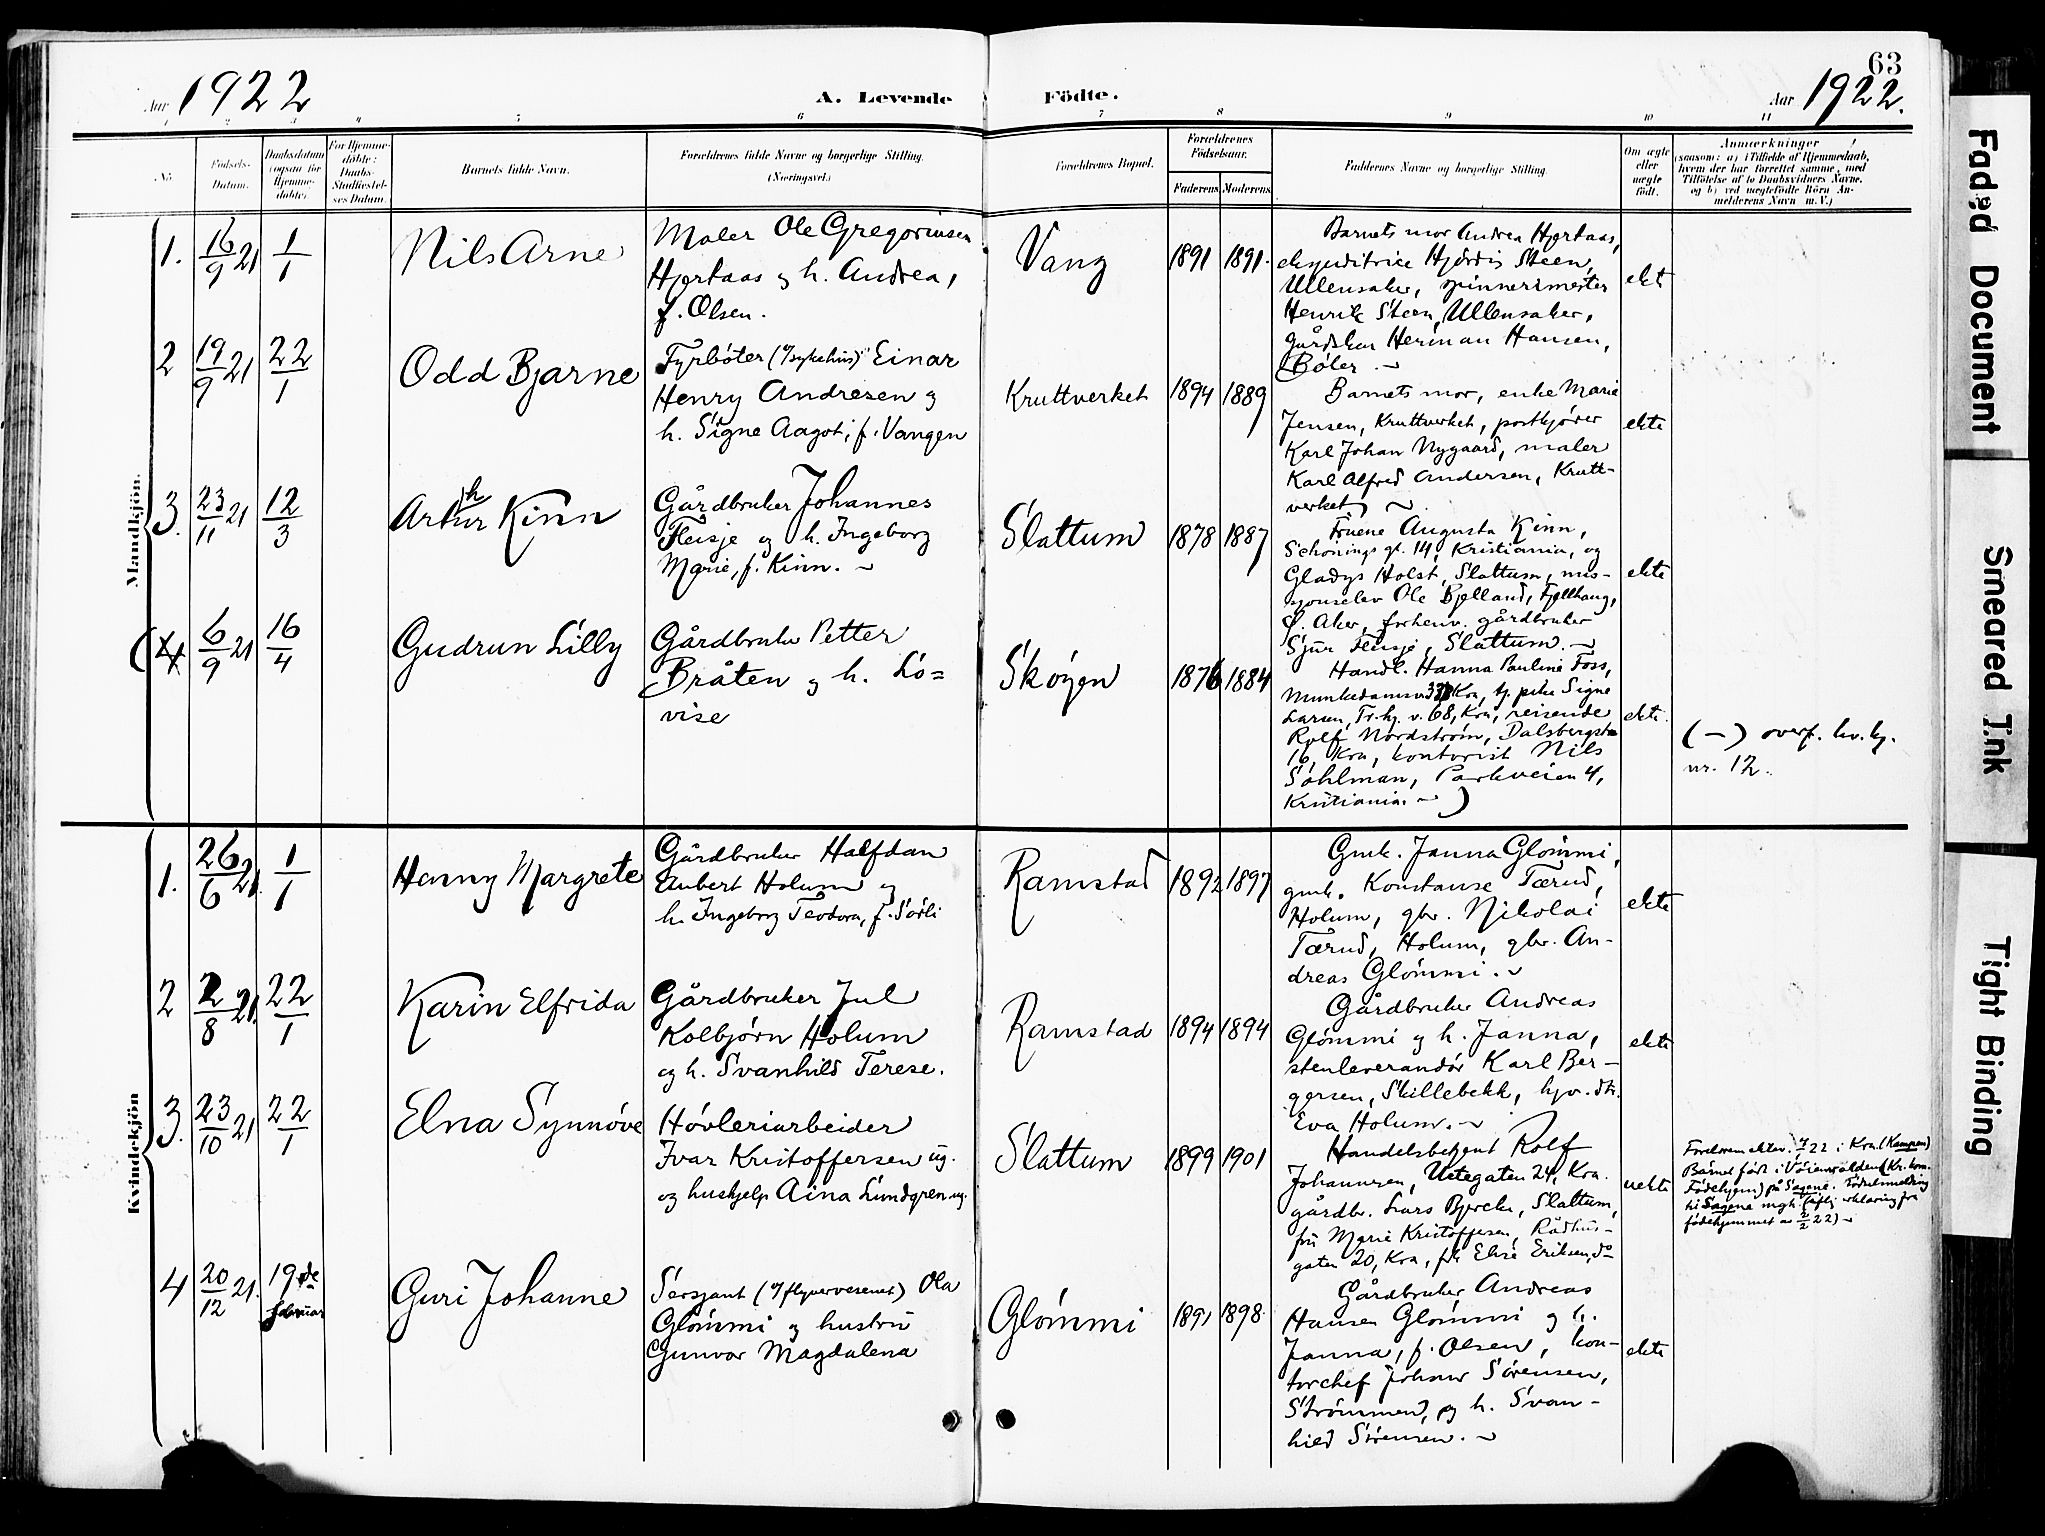 63
Aar 1922
A. Levende
Födte.
Aar 1922.
1 2 3 4 5 6 7 8 9 10 11
No
Fødsels-
Datum.
Daabsdatum
(ogsaa for
Hjemme-
døbte).
For Hjemme-
døbte:
Daabs-
Stadfæstel-
ses Datum.
Barnets fulde Navn.
Forældrenes fulde Navne og borgerlige Stilling.
(Næringsvei.)
Forældrenes Bopæl.
Forældrenes
Fødselsaar.
Faderens. Moderens.
Faddernes Navne og borgerlige Stilling.
Om ægte
eller
uægte
født.
Anmærkninger
(saasom: a) i Tilfælde af Hjemmedaab,
hvem der har forrettet samme, med
Tilføielse af to Daabsvidners Navne.
og b) ved uægtefødte Børn An-
melderens Navn m. V.)
Mandkjön.
1. 16/9 21 1/1 Nils Arne
Maler Ole Gregoriusen
Hjertaas og h. Andrea,
f. Olsen.
Vang 1891 1891.
Barnets mor Andrea Hjertaas,
ekspeditrice Hjørdis Steen,
Ullensaker, spinnerimester
Henrik Steen, Ullensaker,
gårdsbr Herman Hansen,
Bøler.
ekte
2 19/9 21 22/1 Odd Bjarne
Fyrbøter (v/sykehus) Einar
Henry Andresen og
h. Signe Aagot, f. Vangen
Kruttverket 1894 1889
Barnets mor, enke Marie
Jensen, Kruttverket, postkjører
Karl Johan Nygaard, maler
Karl Alfred Andersen, Krutt-
verket
ekte
3. 23/11 21 12/3 Arthur Kinn
Gårdbruker Johannes
Fleisje og h. Ingeborg
Marie, f. Kinn.
Slattum 1878 1887
Fruene Augusta Kinn,
Schønings gt. 14, Kristiania, og
Gladys Holst, Slattum, mis-
sjonselev Ole Bjelland, Fjellhaug,
Ø. Aker, forhenv. gårdbruker
Sjur Fleisje, Slattum.
ekte
(4 6/9 21 16/4 Gudrun Lilly
Gårdbruker Petter
Bråten og h. Lo=
vise
Skøyen 1876 1884
Handl. Hanna Pauline Foss,
Munkedamsv 33, Kra, tj. pike Signe
Larsen, Tr.hj. v. 68, Kra, reisende
Rolf Nordstrøm, Dalsbergst
16, Kra, kontorist Nils
Sohlman, Parkveien 4,
Kristiania. )
ekte.
(—) overf. kv. kj.
nr. 12.
Kvindekjön
1. 26/6 21. 1/1 Hanny Margrete
Gårdbruker Halfdan
Aubert Holum og
h. Ingeborg Teodora, f. Sørli
Ramstad 1892 1897
Gmk. Janna Glømmi,
gmk. Konstanse Tærud,
Holum, gbr. Nikolai
Tærud, Holum, gbr. An-
dreas Glømmi.
ekte
2 2/8 21. 22/1 Karin Elfrida
Gårdbruker Jul
Kolbjørn Holum
og h. Svanhild Terese.
Ramstad 1894 1894
Gårdbruker Andreas
Glømmi og h. Janna,
stenleverandør Karl Ber-
gersen, Skillebekk, hjv. dtr.
Eva Holum.
ekte
3. 23/10 21 22/1 Elna Synnøve
Høvleriarbeider
Ivar Kristoffersen ug.
og hushjelp Aina Lundgren ug.
Slattum 1899 1901
Handelsbetjent Rolf
Johannesen, Urtegaten 24, Kra.
gårdbr. Lars Bjercke, Slattum,
fru Marie Kristoffersen, Rådhus-
gaten 20, Kra, frk Elise Eriksen, do
uekte
Foreldrene ektev. 22 i Kra. (Kampen)
Barnet født i Vøienvolden (Kr. kom.
Fødehjem) på Sagene. Fødselsmelding
til Sagene mgk. (iflg. erklæring fra
fødehjemmet av 2/2 22)
4 20/12 21. 19de
februar
Guri Johanne
Sersjant (v/flyvervesenet) Ola
Glømmi og hustru
Gunvor Magdalena
Glømmi 1891 1898.
Gårdbruker Andreas
Hansen Glømmi og h.
Janna, f. Olsen, kon-
torchef Johner Sørensen,
Strømmen, og h. Svan-
hild Sørensen.
ekte
Faded Document
Smeared Ink
Tight Binding